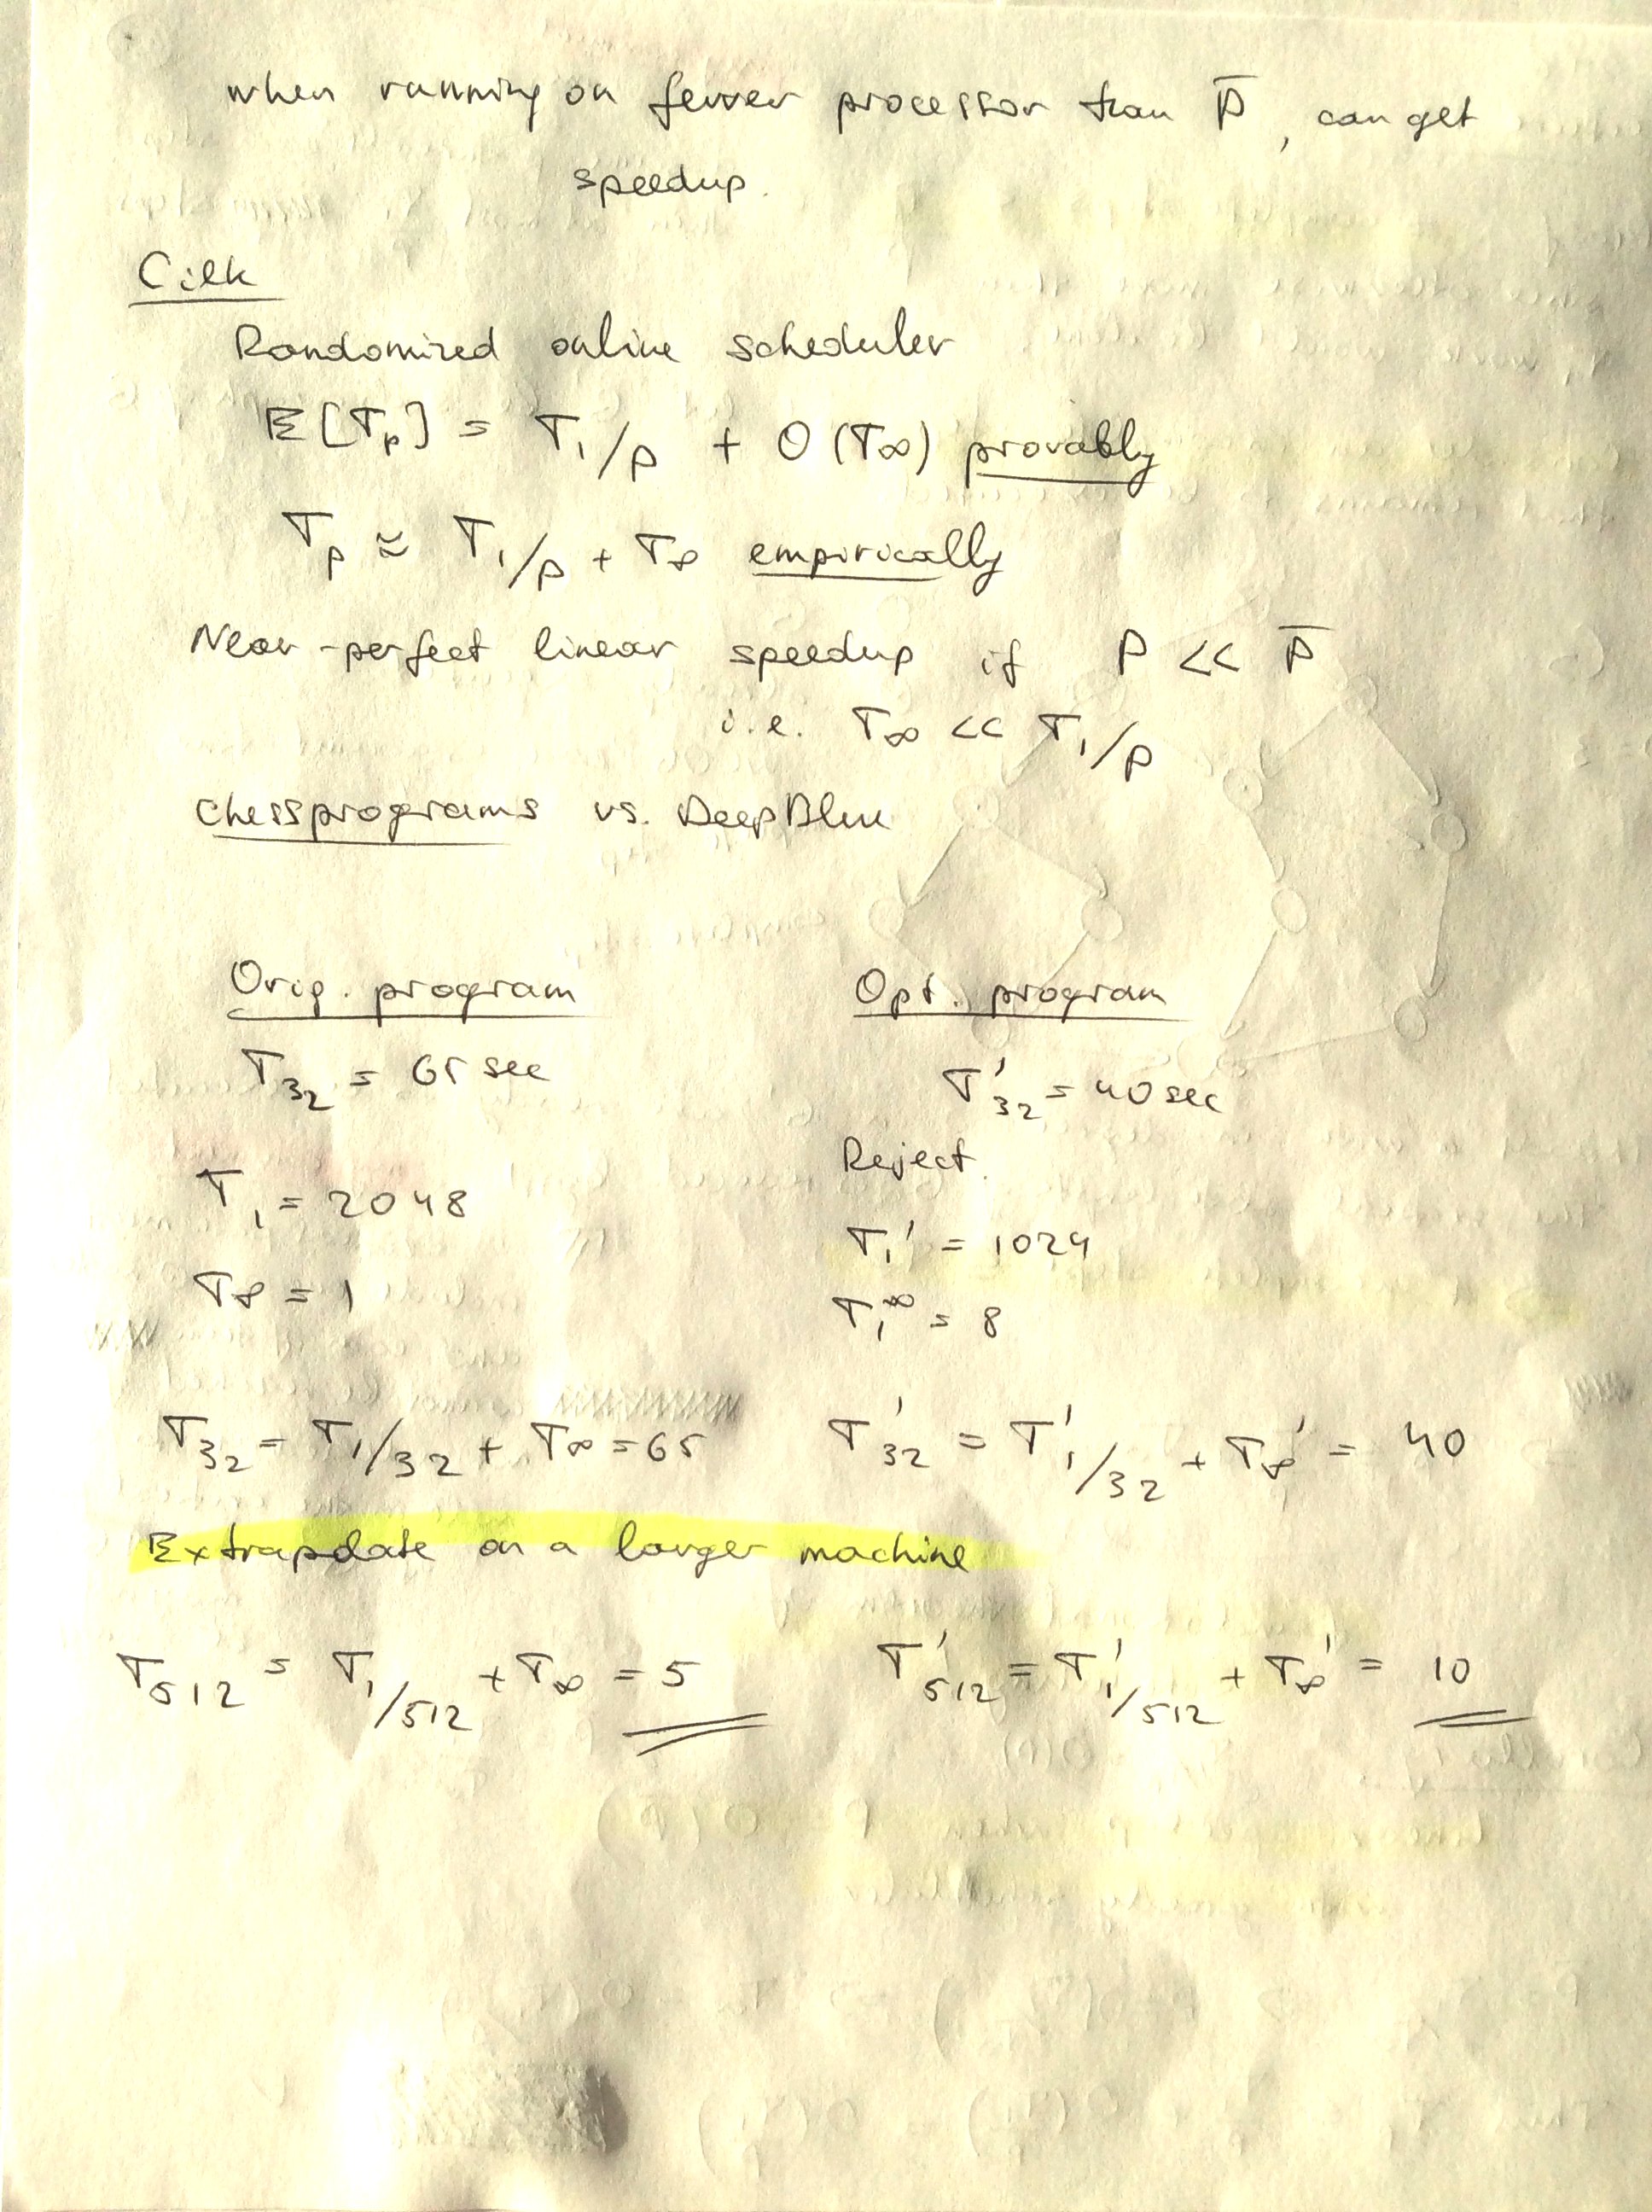 when running on fewer processor than P̅, can get
speedup.
Cilk
Randomized online scheduler
E[Tp] = T₁/p + O(T∞) provably
Tp ≈ T₁/p + T∞ empirically
Near-perfect linear speedup if P << P̅
i.e. T∞ << T₁/p
Chessprograms vs. DeepBlue
Orig. program
T₃₂ = 65 sec
T₁ = 2048
T∞ = 1
T₃₂ = T₁/32 + T∞ = 65
Opt. program
T'₃₂ = 40 sec
Reject.
T₁' = 1024
T₁^∞ = 8
T'₃₂ = T'₁/32 + T∞' = 40
Extrapolate on a larger machine
T₅₁₂ = T₁/512 + T∞ = 5
T'₅₁₂ = T'₁/512 + T∞' = 10